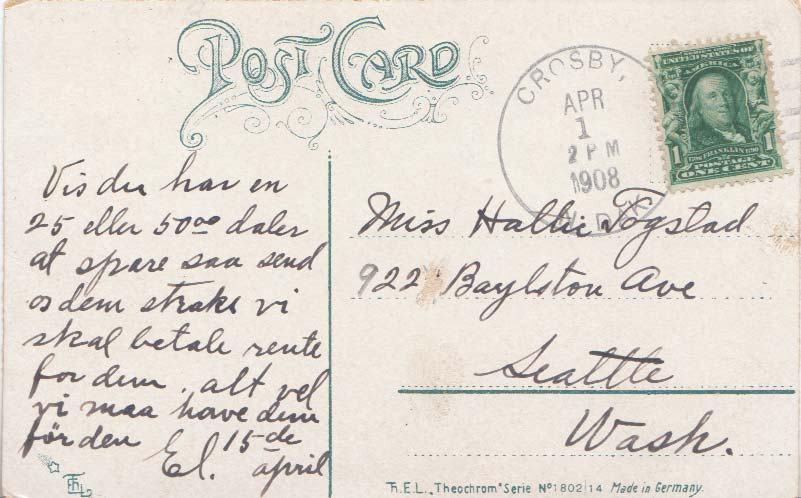 POST CARD
CROSBY,
APR
1
2 PM
1908
N. DAK
UNITED STATES OF
AMERICA
1 1
FRANKLIN
POSTAGE
ONE CENT
Vis du har en
25 eller 50 00 daler
at spare saa send
os dem straks vi
skal betale rente
for dem. alt vel
vi maa have dem
før den 15 de
El. april
Miss Hallie Fogstad
922 Baylston Ave
Seattle
Wash.
T.h.E.L. „Theochrom" Serie No 1802/14 Made in Germany.